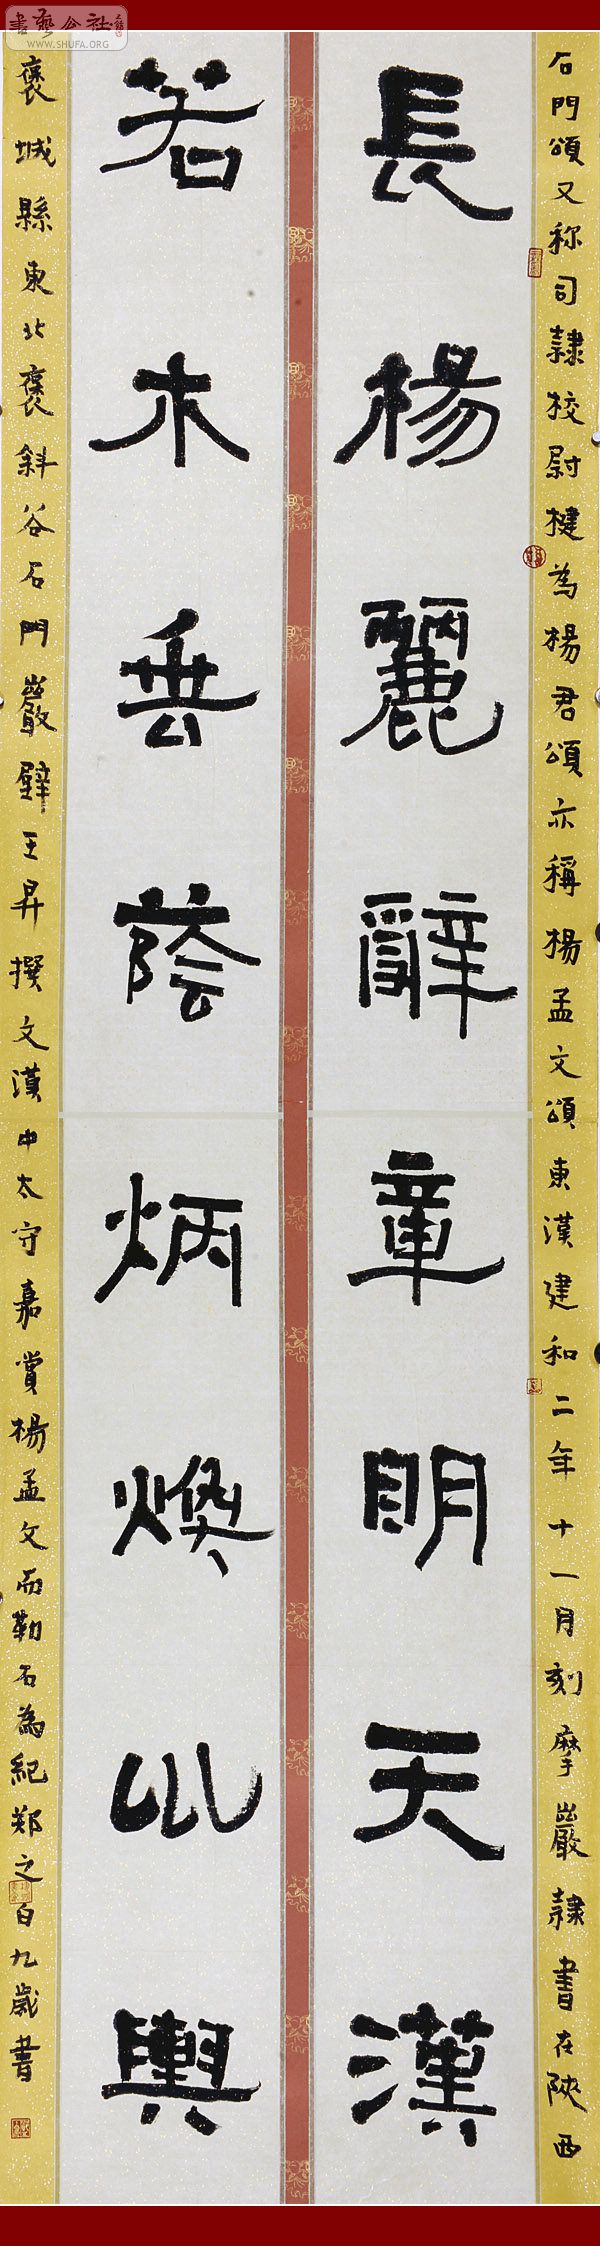 書藝公社
WWW.SHUFA.ORG
石門頌又称司隸校尉揵為楊君頌亦稱楊孟文頌東漢建和二年十一月刻摩巖隸書在陝西
長楊麗辭章明天漢
若木垂蔭炳煥巛輿
褒城縣東北褒斜谷石門巖壁王昇撰文漢中太守嘉賞楊孟文而勒石為紀郑之白九歲書